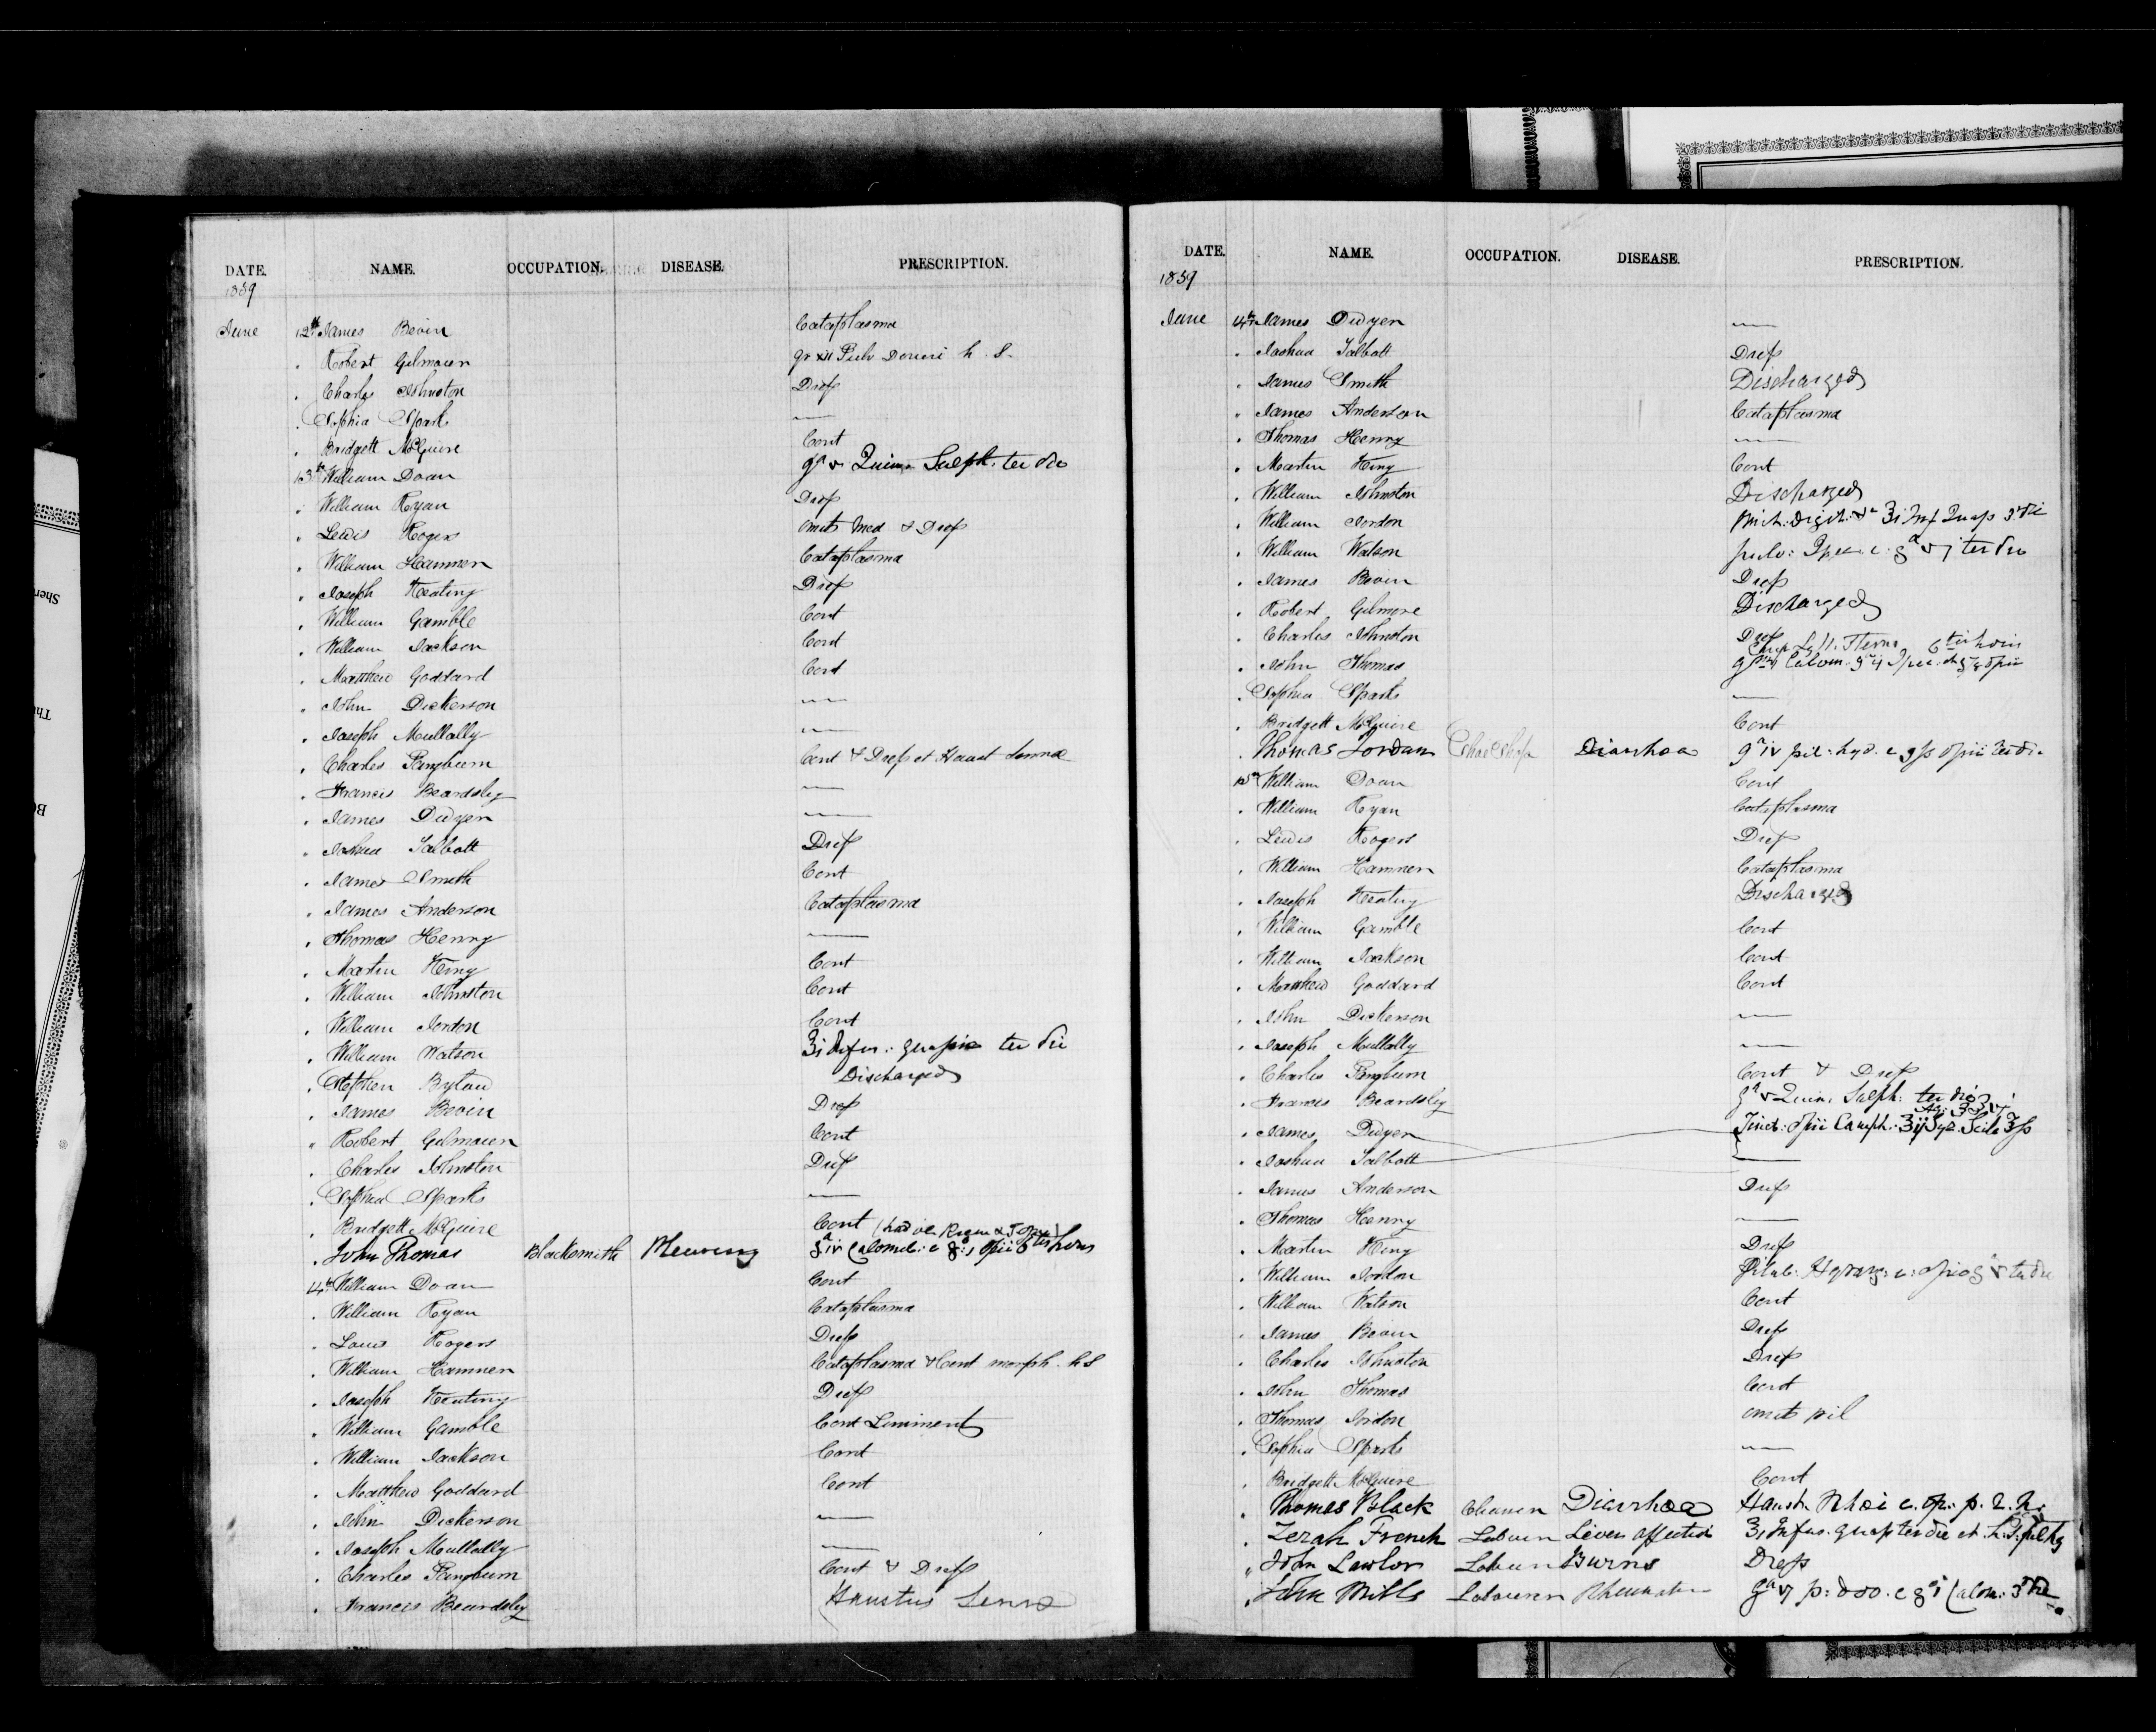 DATE. NAME. OCCUPATION. DISEASE. PRESCRIPTION.
1839
June 12th James Bevin Cataplasma
. Robert Gilmouer gr xii Pulv Doveri h. s.
. Charles Johnston Dress
. Sophia Sparks —
. Bridgett McGuire Cont
13th William Doan gr v Quinæ Sulph. ter die
. William Ryan Dress
. Lewis Rogers Omit Med & Dress
. William Hammen Cataplasma
. Joseph Keating Dress
. William Gamble Cont
. William Jackson Cont
. Matthew Goddard Cont
. John Dickerson —
. Joseph Mullally —
. Charles Pangburn Cont & Dress et Haust Sennæ
. Francis Beardsley —
. James Dwyer —
. Joshua Talbott Dress
. James Smith Cont
. James Anderson Cataplasma
. Thomas Henry —
. Martin King Cont
. William Johnston Cont
. William Jordon Cont
. William Watson ʒi Infus: quassiæ ter die
. Stephen Byland Discharged
. James Bevin Dress
" Robert Gilmouer Cont
. Charles Johnston Dress
. Sophia Sparks —
. Bridgett McGuire Cont
. John Thomas Blacksmith gr iv Calomel: c gr: i Opii 6tis horis
14th William Doan Cont
. William Ryan Cataplasma
. Louis Rogers Dress
. William Hammen Cataplasma & Cont morph. h s
. Joseph Keating Dress
. William Gamble Cont Liniment
. William Jackson Cont
. Matthew Goddard Cont
. John Dickerson —
. Joseph Mullally —
. Charles Pangburn Cont & Dress
. Francis Beardsley Haustus Senna
DATE. NAME. OCCUPATION. DISEASE. PRESCRIPTION.
1839
June 14th James Dwyer —
. Joshua Talbott Dress
. James Smith Discharged
. James Anderson Cataplasma
. Thomas Henry —
. Martin King Cont
. William Johnston Discharged
. William Jordon
. William Watson ter die
. James Bevin Dress
. Robert Gilmore Discharged
. Charles Johnston Dress
. John Thomas
. Sophia Sparks —
. Bridgett McGuire Cont
. Thomas Jordan Shoe Shop Diarrhoea gr iv pil: hyd. c gss opii ter die
15th William Doan Cont
. William Ryan Cataplasma
. Lewis Rogers Dress
. William Hammen Cataplasma
. Joseph Keating Discharged
. William Gamble Cont
. William Jackson Cont
. Matthew Goddard Cont
. John Dickerson —
. Joseph Mullally —
. Charles Pangburn Cont & Dress
. Francis Beardsley gr v Quin: Sulph: ter die
. James Dwyer Tinct: Opii Camph: ʒij Syr. Scila ʒss
. Joshua Talbott —
. James Anderson Dress
. Thomas Henry —
. Martin King Dress
. William Jordon
. William Watson Cont
. James Bevin Dress
. Charles Johnston Dress
. John Thomas Cont
. Thomas Jordon omit pil
. Sophia Sparks —
. Bridgett McGuire Cont
. Thomas Black Cleaner Diarrhoea Haust. Rhœi c. op: p. r. n.
. Zerah French Labourer Liver affection ʒi Infus. quas ter die et h. s. pil hy
" John Lawlor Labourer Burns Dress
. John Mills Labourer